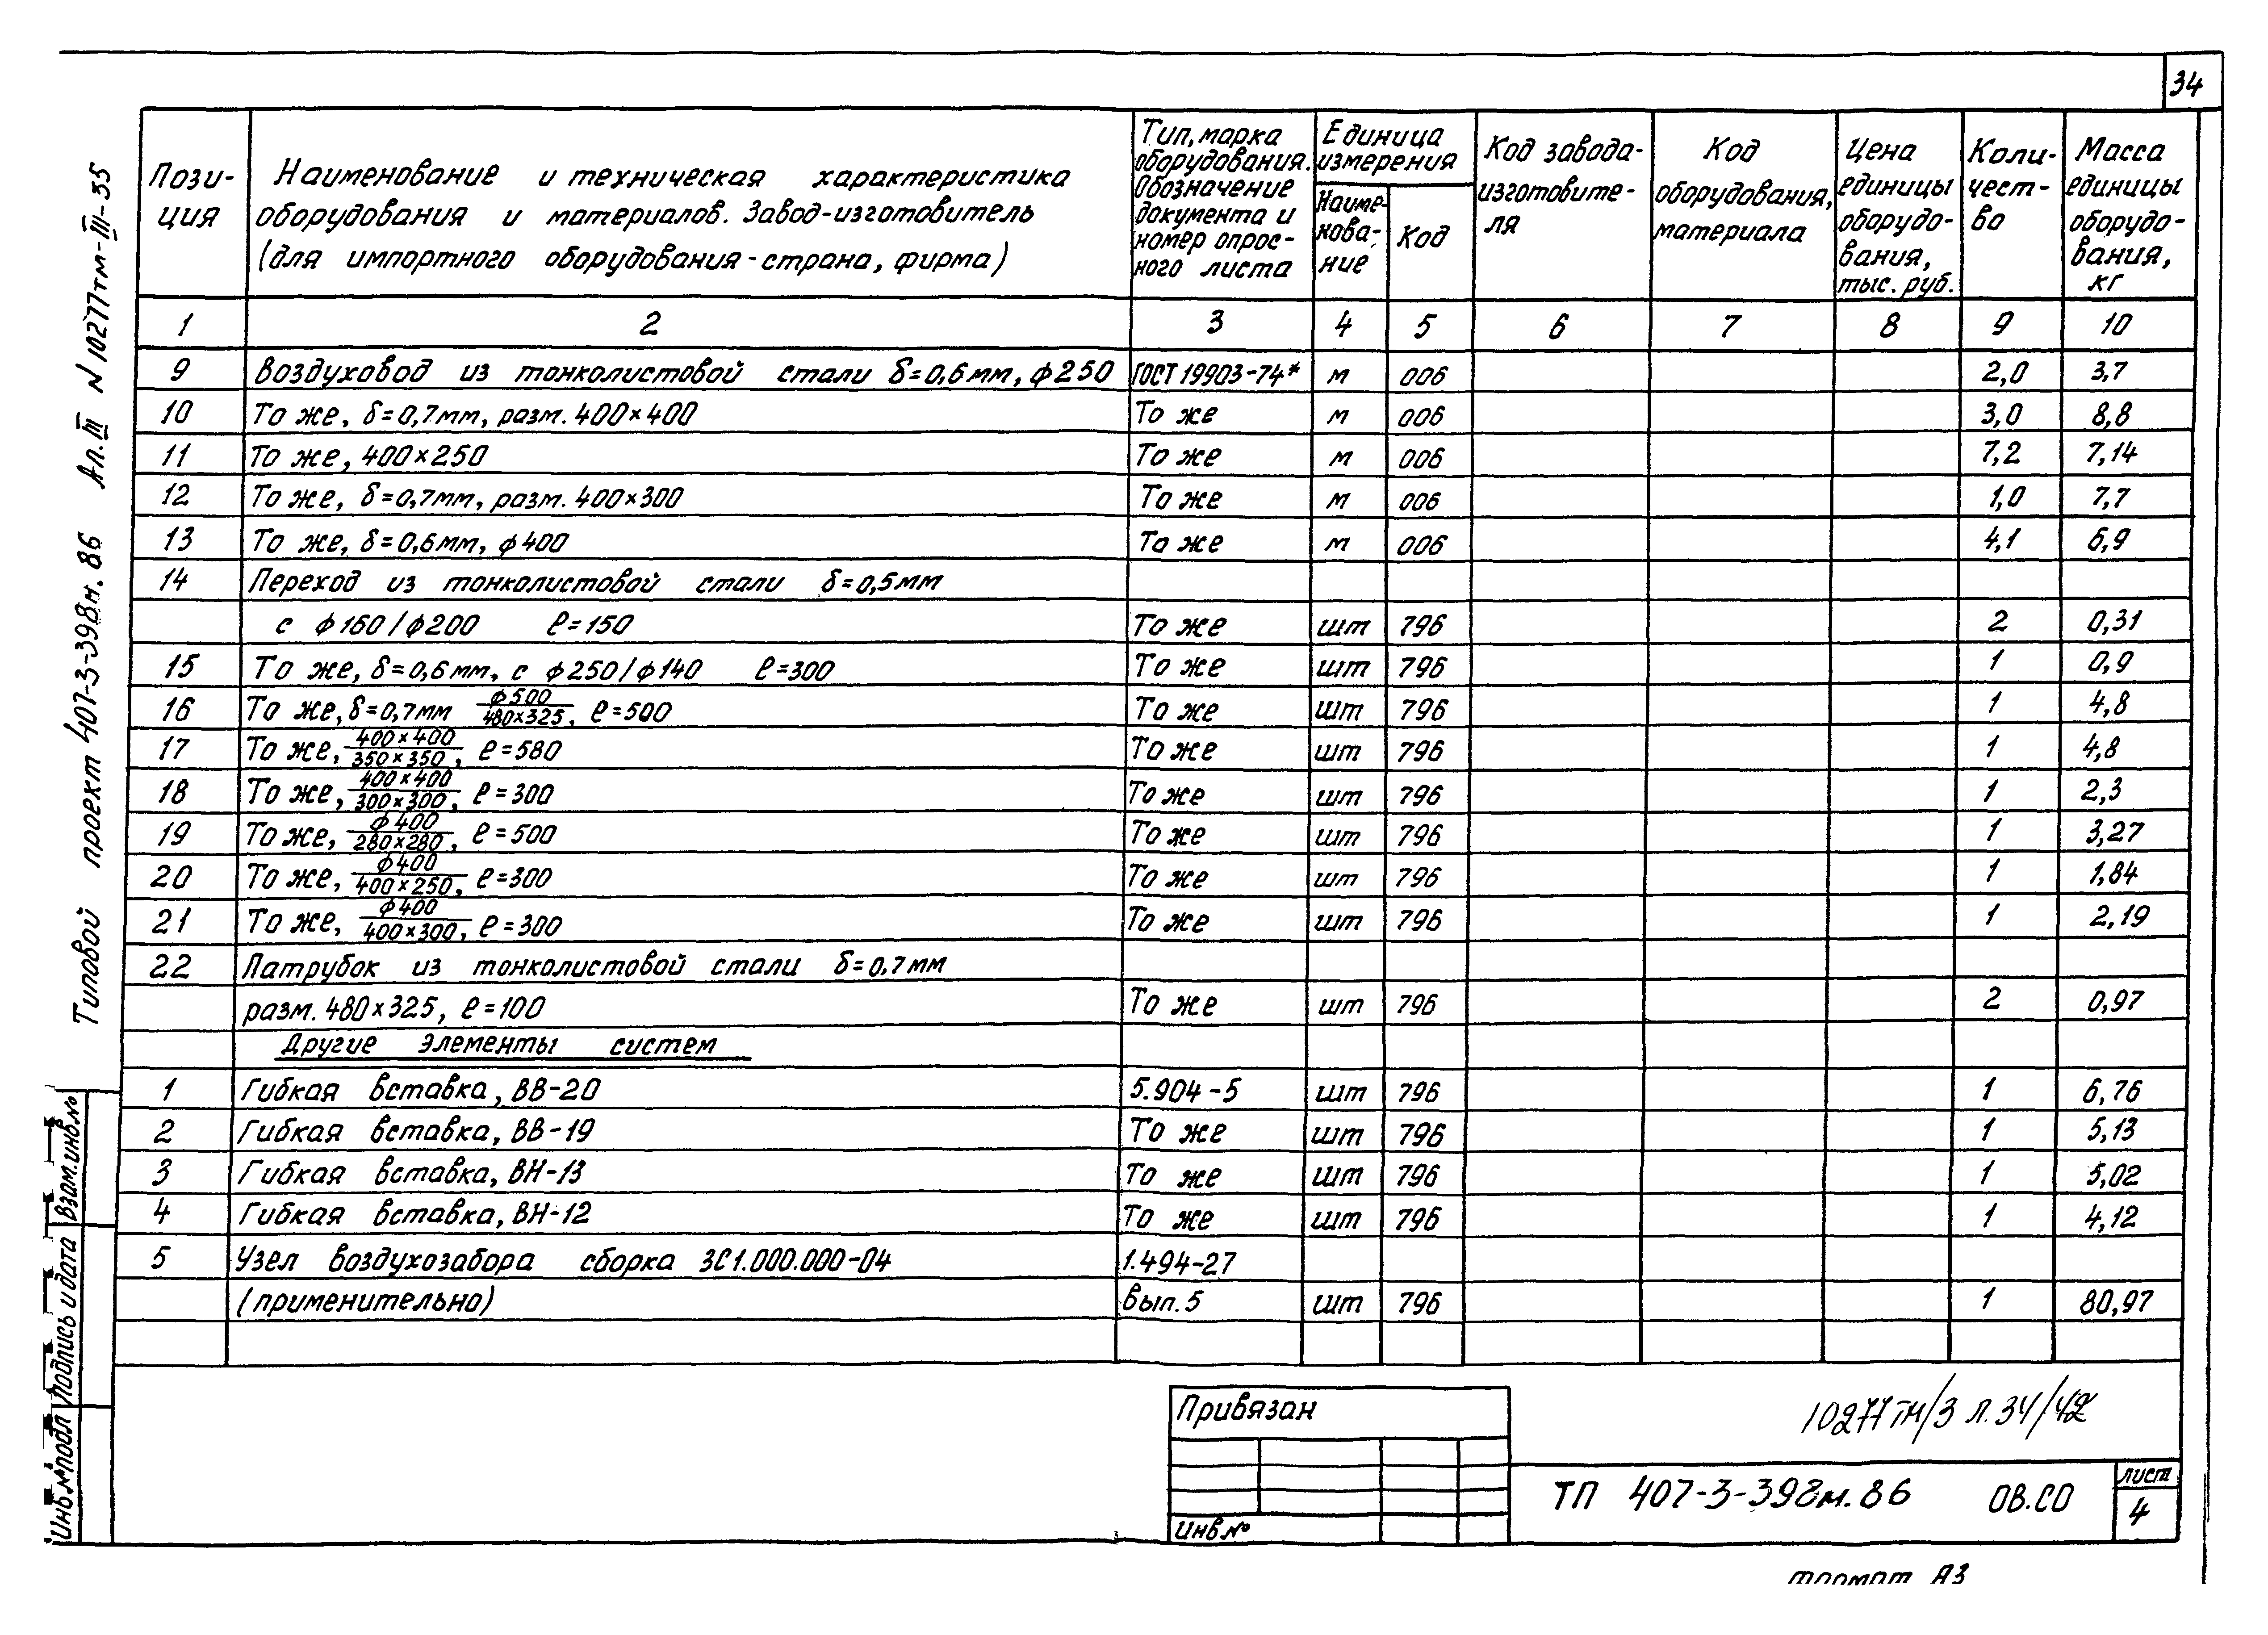 34
Пози-
ция
Наименование и техническая характеристика
оборудования и материалов. Завод-изготовитель
(для импортного оборудования-страна, фирма)
Тип, марка
оборудования.
Обозначение
документа и
номер опрос-
ного листа
Единица
измерения
Наиме-
нова-
ние
Код
Код завода-
изготовите-
ля
Код
оборудования,
материала
Цена
единицы
оборудо-
вания,
тыс. руб.
Коли-
чест-
во
Масса
единицы
оборудо-
вания,
кг
1 2 3 4 5 6 7 8 9 10
9 Воздуховод из тонколистовой стали δ=0,6мм, ф250 ГОСТ 19903-74* м 006 2,0 3,7
10 То же, δ=0,7мм, разм. 400×400 То же м 006 3,0 8,8
11 То же, 400×250 То же м 006 7,2 7,14
12 То же, δ=0,7мм, разм. 400×300 То же м 006 1,0 7,7
13 То же, δ=0,6мм, ф400 То же м 006 4,1 6,9
14 Переход из тонколистовой стали δ=0,5мм
с ф160/ф200 ℓ=150 То же шт 796 2 0,31
15 То же, δ=0,6мм, с ф250/ф140 ℓ=300 То же шт 796 1 0,9
16 То же, δ=0,7мм ф500/480×325, ℓ=500 То же шт 796 1 4,8
17 То же, 400×400/350×350, ℓ=580 То же шт 796 1 4,8
18 То же, 400×400/300×300, ℓ=300 То же шт 796 1 2,3
19 То же, ф400/280×280, ℓ=500 То же шт 796 1 3,27
20 То же, ф400/400×250, ℓ=300 То же шт 796 1 1,84
21 То же, ф400/400×300, ℓ=300 То же шт 796 1 2,19
22 Патрубок из тонколистовой стали δ=0,7мм
разм. 480×325, ℓ=100 То же шт 796 2 0,97
Другие элементы систем
1 Гибкая вставка, ВВ-20 5.904-5 шт 796 1 6,76
2 Гибкая вставка, ВВ-19 То же шт 796 1 5,13
3 Гибкая вставка, ВН-13 То же шт 796 1 5,02
4 Гибкая вставка, ВН-12 То же шт 796 1 4,12
5 Узел воздухозабора сборка ЗС1.000.000-04 1.494-27
(применительно) вып. 5 шт 796 1 80,97
Типовой проект 407-3-398м. 86 Ал. III N 10277тм-III-35
Взам.инв.№
Подпись и дата
Инв.№подл
Привязан
Инв.№
10277тм/3 л.34/42
ТП 407-3-398м.86 ОВ.СО
лист
4
формат А3